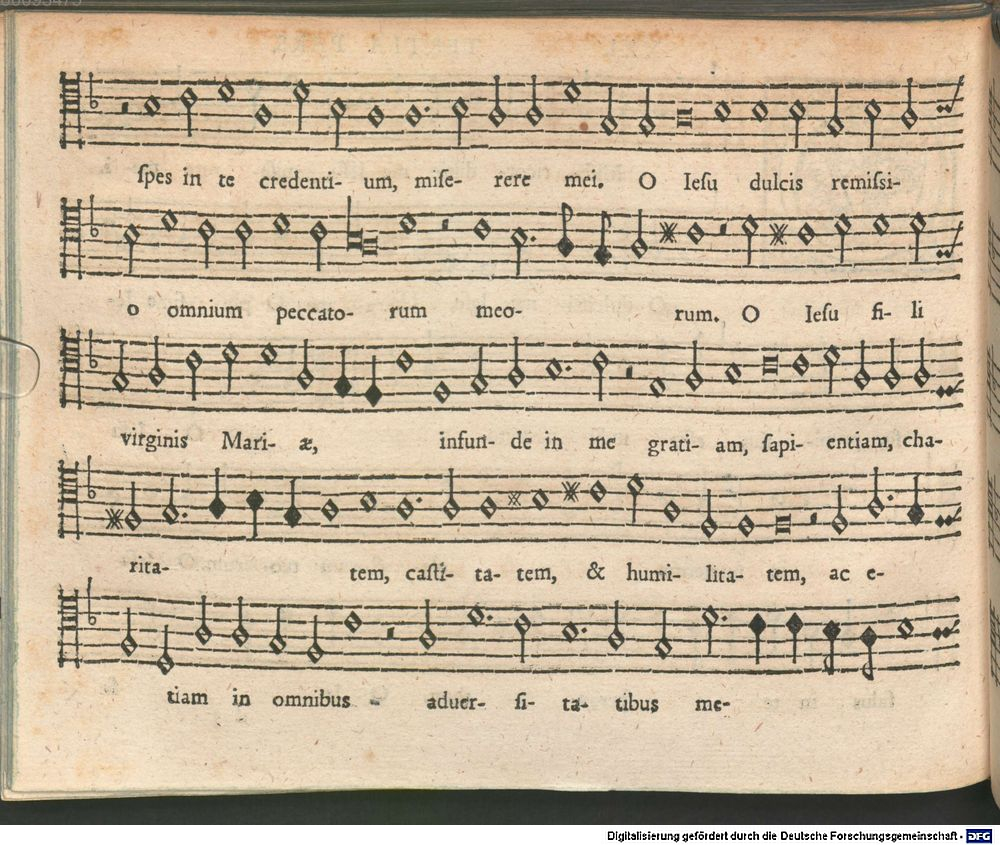 ſpes in te credenti- um, miſe- rere mei. O Ieſu dulcis remiſsi-
o omnium peccato- rum meo- rum. O Ieſu fi- li
virginis Mari- æ, infun- de in me grati- am, ſapi- entiam, cha-
rita- tem, caſti- ta- tem, & humi- lita- tem, ac e-
tiam in omnibus - aduer- ſi- ta- tibus me-
Digitalisierung gefördert durch die Deutsche Forschungsgemeinschaft - DFG